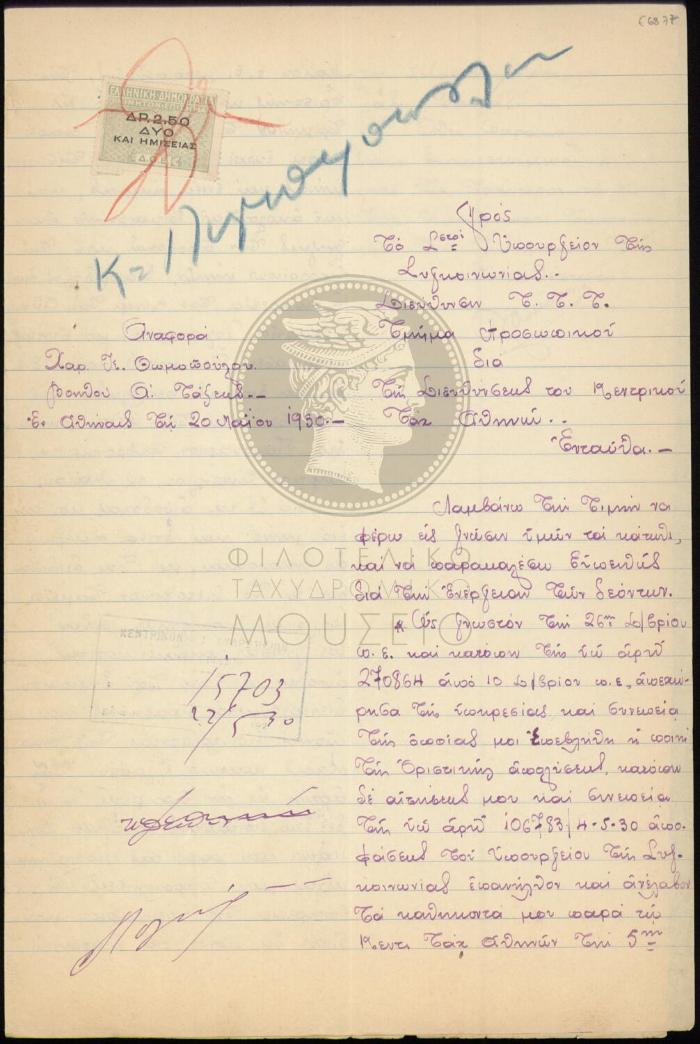 C6877
ΕΛΛΗΝΙΚΗ ΔΗΜΟΚΡΑΤΙΑ
ΔΡ. 2,50
ΔΥΟ
ΚΑΙ ΗΜΙΣΕΙΑΣ
Πρός
Τὸ Σεστὸν Ὑπουργεῖον Τῆς
Συγκοινωνίας..
Διεύθυνσιν Τ. Τ. Τ.
Τμῆμα Προσωπικοῦ
δια
Τῆς Διευθύνσεως του Κεντρικοῦ
Ταχ Ἀθηνῶν..
Ἐνταῦθα.-
Αναφορά
Χαρ. Γε. Θωμοπούλου
βοηθου Α! Τάξεως.-
Ἐν Ἀθήναις Τῇ 20 Μαΐου 1930.-
Λαμβάνω Τὴν Τιμὴν να
φέρω εἰς γνῶσιν ὑμῶν τα κάτωθι,
και να παρακαλέσω Εὐπειθῶς
δια Τὴν Ἐνέργειαν Τῶν δεόντων.
Ὡς γνωστόν Τὴν 26ην 8/βρίου
π. ἔ. και κατόπιν Τῆς ὑπ ἀριθ
270864 ἀπὸ 10 8/βρίου π. ἔ., ἀπεχώ-
ρησα Τῆς ὑπηρεσίας και συνεπεία
Τῆς ὁποίας μοι Ἐπεβλήθη ἡ ποινὴ
Τῆς Ὁριστικῆς ἀπολύσεως, κατόπιν
δὲ αἰτήσεως μου και συνεπεία
Τῆς ὑπ ἀριθ 106783/4-5-30 ἀπο-
φάσεως Τοῦ Ὑπουργείου Τῆς Συγ-
κοινωνίας ἐπανῆλθον και ἀνέλαβον
Τα καθήκοντα μου παρα τῷ
Κεντ. Ταχ Ἀθηνῶν Τὴν 5ην
ΚΕΝΤΡΙΚΟΝ
15703
22/5 30
ΦΙΛΟΤΕΛΙΚΟ
ΤΑΧΥΔΡΟΜΙΚΟ
ΜΟΥΣΕΙΟ